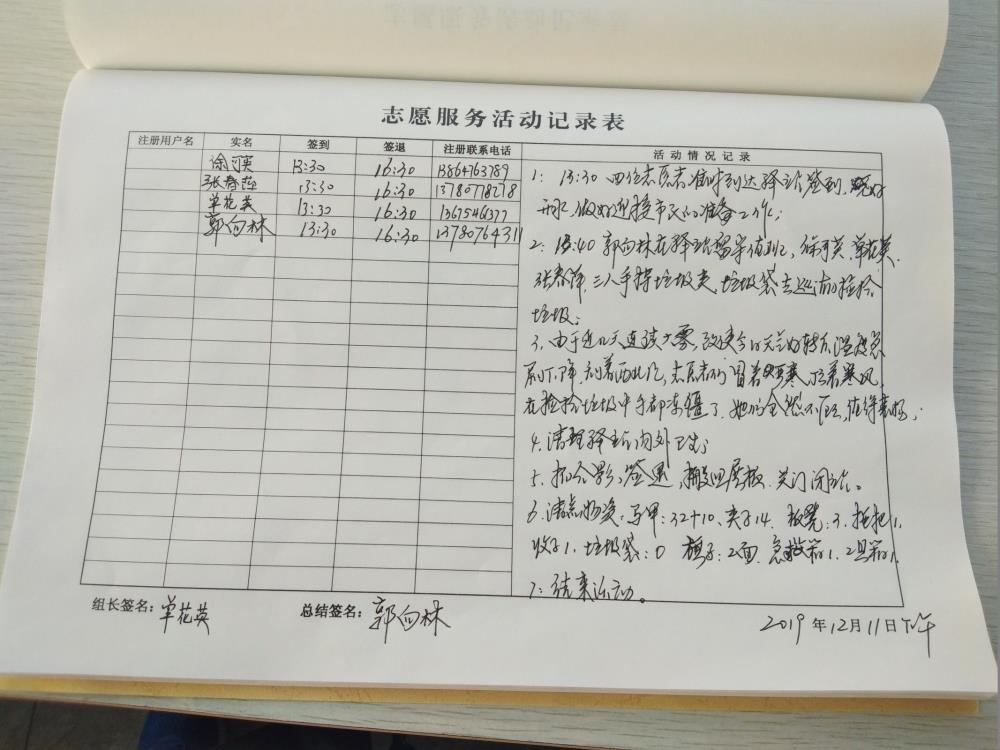 志愿服务活动记录表
注册用户名 实名 签到 签退 注册联系电话 活动情况记录
徐可英 13:30 16:30 13864763789
张春萍 13:30 16:30 13780778278
单花英 13:30 16:30 1367546377
郭向林 13:30 16:30 13780764311
1: 13:30 四位志愿者准时到达驿站签到,
开水,做好迎接市民的准备工作;
2: 13:40 郭向林在驿站留守值班,徐可英.单花英.
张春萍.三人手持垃圾夹.垃圾袋去巡湖捡拾
垃圾;
3、由于近几天连续大雾,致使今日天气好转后温度急
剧下降,刮着西北风,志愿者们冒着严寒,顶着寒风
在捡拾垃圾中手都冻僵了.她们全然不顾,值得表扬;
4.清理驿站内外卫生;
5、拍合影,签退,搬回展板.关门闭站。
6.清点物资,马甲:32+10、夹子14.板凳:3.拖把1.
垃圾袋:0 旗子:2面.急救箱1.工具箱1.
7:结束活动。
组长签名:单花英 总结签名:郭向林
2019年12月11日下午